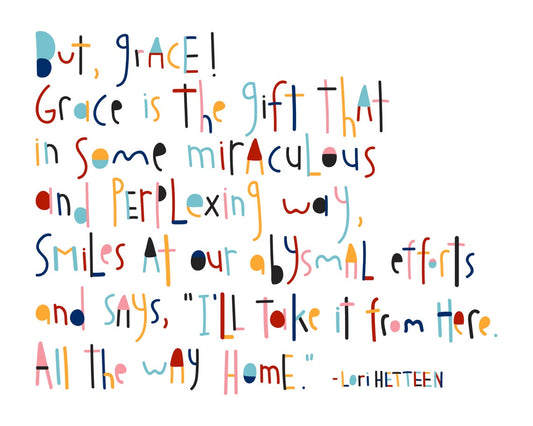 But, grACE!
GrACE is THe gifT THAT
in some mirACuLous
and PERPLexing way,
SmiLes AT our abysmAL efforts
and sAys, "I'LL Take iT from Here.
All the wAy HomE."
-Lori HETTEEN